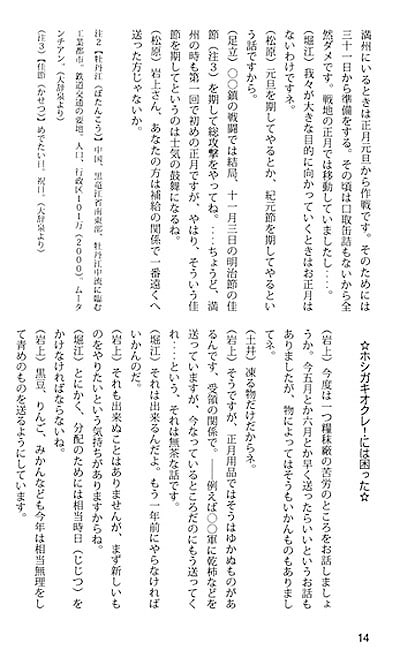 満州にいるときは正月元旦から作戦です。そのためには
三十一日から準備をする。その頃は口取缶詰もないから全
然ダメです。戦地の正月では移動していましたし・・・。
(堀江) 我々が大きな目的に向かっていくときはお正月は
ないわけですネ。
(松原) 元旦を期してやるとか、紀元節を期してやるとい
う話ですから。
(足立) 〇〇鎮の戦闘では結局、十一月三日の明治節の佳
節(注3)を期して総攻撃をやってね。・・・ちょうど、満
州の時も第一回で初めの正月ですが、やはり、そういう佳
節を期してというのは士気の鼓舞になるね。
(松原) 岩上さん、あなたの方は補給の関係で一番遠くへ
送った方じゃないか。
注2【牡丹江】(ぼたんこう) 中国、黒竜江省南東部、牡丹江中流に臨む
工業都市。鉄道交通の要地。人口、行政区101万(2000)。ムータ
ンチアン。(大辞泉より)
(注3)【佳節】(かせつ) めでたい日。祝日。(大辞泉より)
☆ホシガキオクレ!には困った☆
(岩上) 今度は一つ糧秣廠の苦労のところをお話しましょ
うか。今五月とか六月とか早く送ったらいいというお話も
ありましたが、物によってはそうもいかんものもありまし
てネ。
(土井) 凍る物だけだからネ。
(岩上) そうですが、正月用品ではそうはゆかぬものがあ
るんです、受領の関係で。――例えば〇〇軍に乾柿などを
送っていますが、今なっているところだのにもう送ってく
れ・・・という、それは無茶な話です。
(堀江) それは出来るんだよ。もう一年前にやらなければ
いかんのだ。
(岩上) それも出来ぬことはありませんが、まず新しいも
のをやりたいという気持ちがありますからね。
(堀江) とにかく、分配のためには相当時日(じじつ)を
かけなければならないね。
(岩上) 黒豆、りんご、みかんなども今年は相当無理をし
て青めのものを送るようにしています。
14